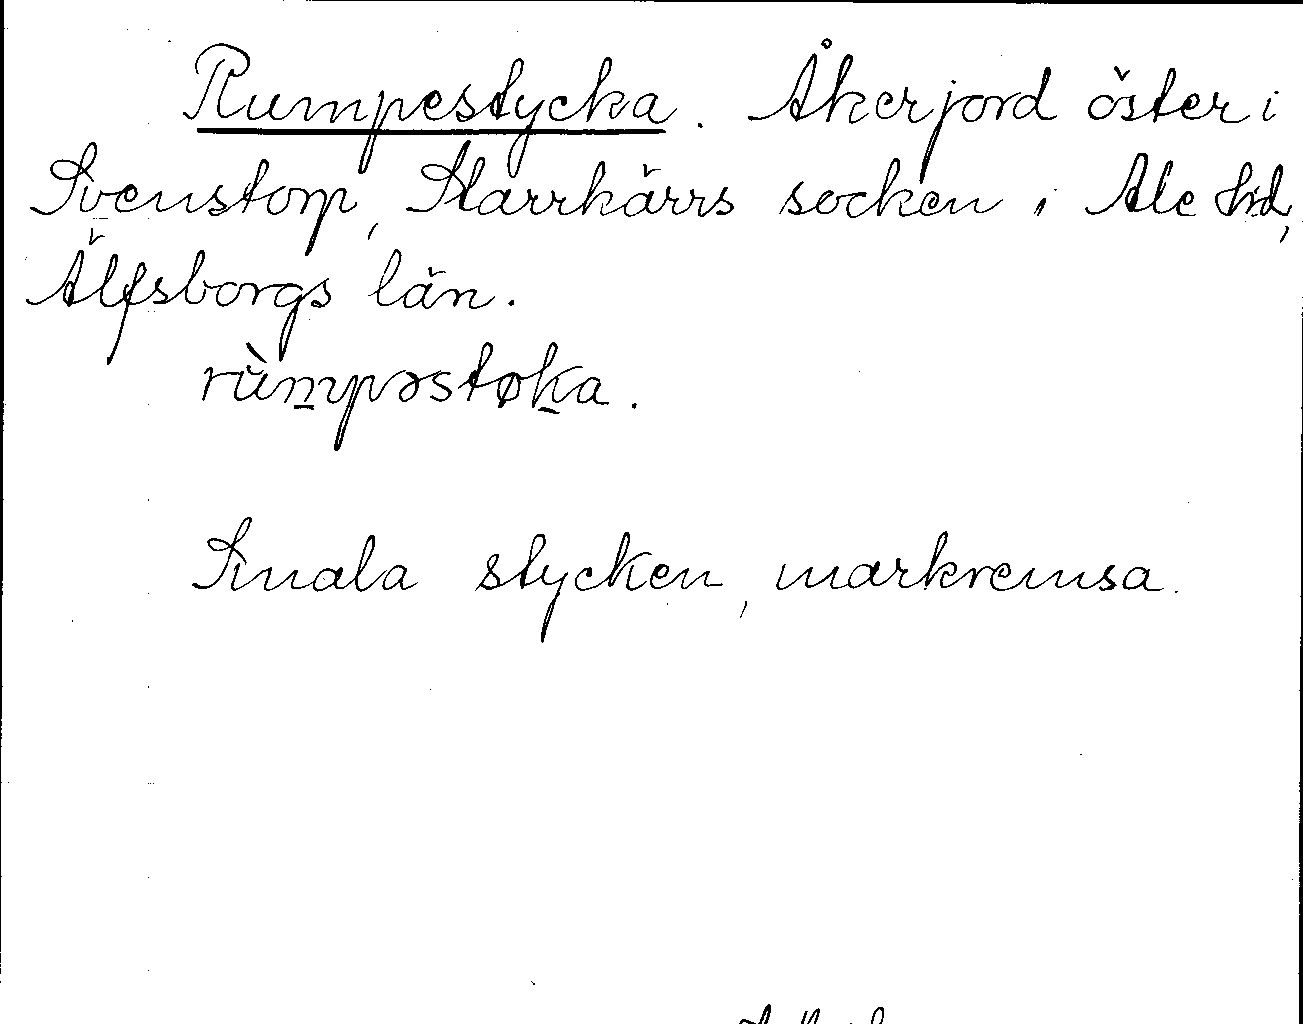 Rumpestycka. Åkerjord öster i
Svenstorp, Starrkärrs socken i Ale hd,
Älfsborgs län.
rùmpəstøka.
Smala stycken, markremsa.